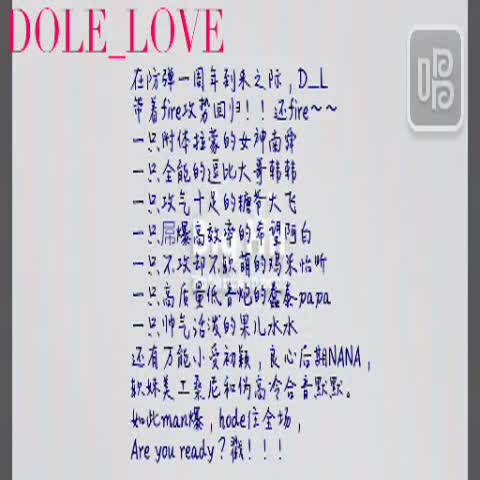 DOLE_LOVE
唱吧
在防弹一周年到来之际，D_L
带着fire攻势回归！！还fire～～
一只附体拉蒙的女神南霖
一只全能的逗比大哥韩韩
一只攻气十足的糖爷大飞
一只屌爆高效率的希望阿白
一只不攻却不软萌的鸡米怡昕
一只高质量低音炮的蠢泰papa
一只帅气活泼的果儿水水
还有万能小受初颖，良心后期NANA，
软妹美工桑尼和伪高冷合音默默。
如此man爆，hode住全场，
Are you ready？戳！！！